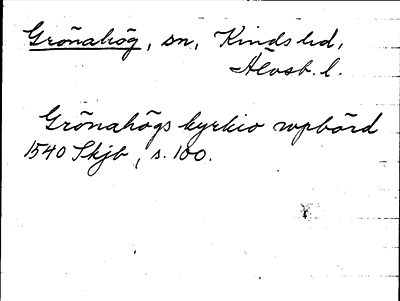 Grönahög, sn, Kinds hd,
Älvsb. l.
Grönahögs kyrkio wpbörd
1540 Skjb, s. 100.